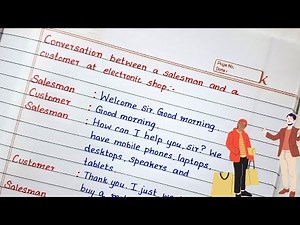 Page No.
Date:
K
Conversation between a salesman and a
customer at electronic shop:-
Salesman : Welcome Sir. Good morning.
Customer : Good morning.
Salesman : How can I help you, sir? We
have mobile phones, laptops,
desktops, speakers, and
tablets.
Customer : Thank you. I just
Salesman buy a